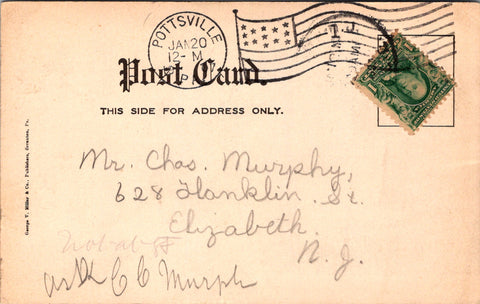 POTTSVILLE
JAN 20
12- M
Post Card.
THIS SIDE FOR ADDRESS ONLY.
George T. Miller & Co., Publishers, Scranton, Pa.
Mr. Chas. Murphy,
628 Franklin St.
Elizabeth.
N. J.
ask C C Murph